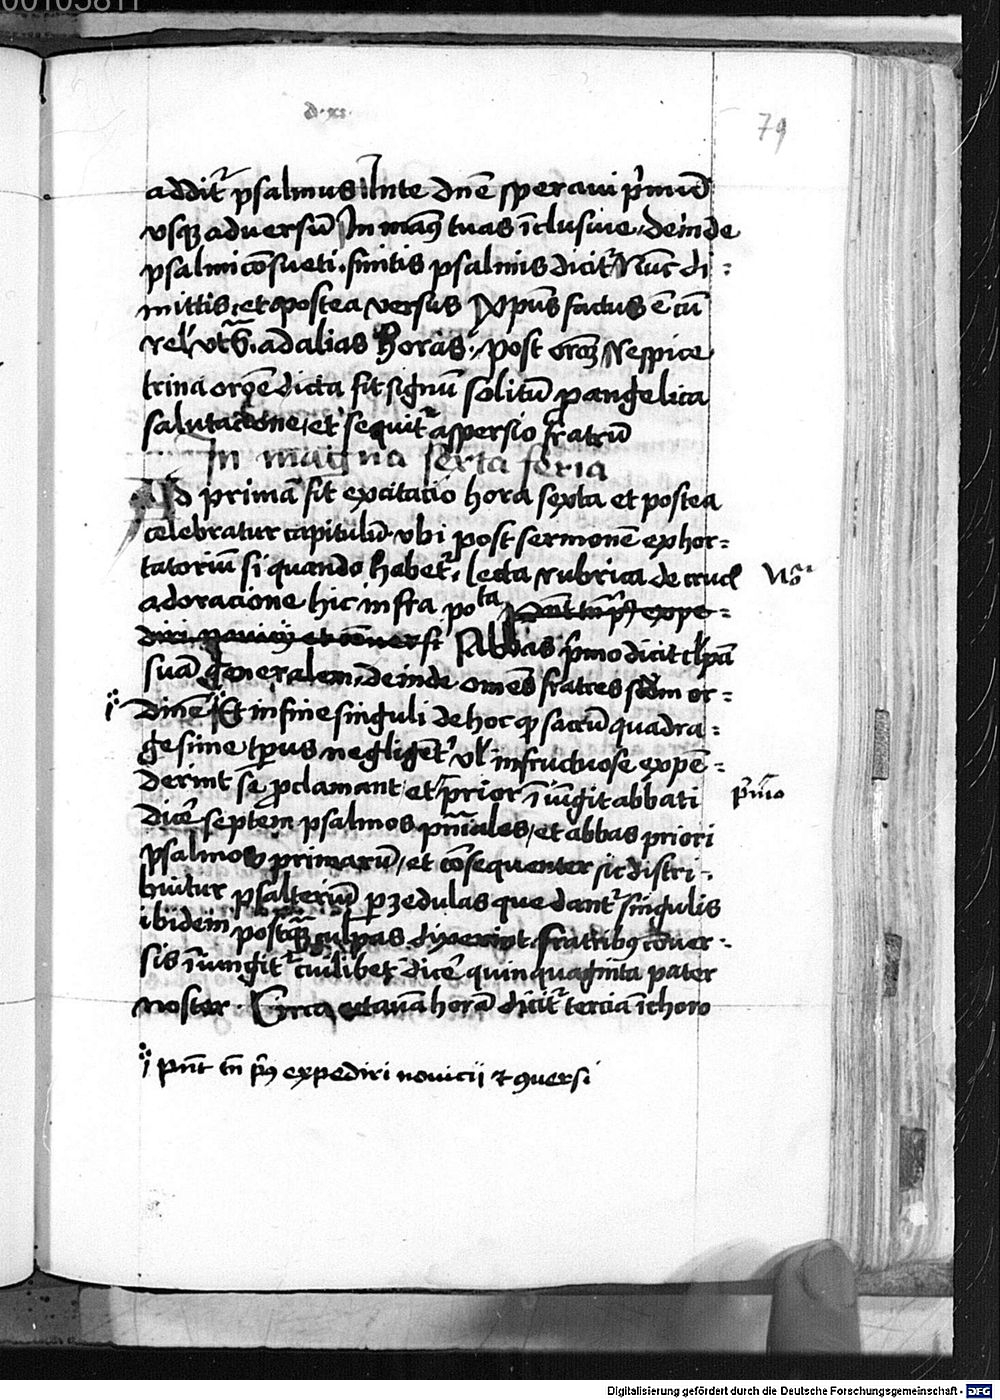 00105811
d. xi.
79
addit᷑ psalmus In te dn̄e speraui pͥmūͦ
vsqꝫ ad versū In manꝰ tuas īclusiue. deinde
psalmi cōsueti. finitis psalmis dicit᷑ Nūc di-
mittis. et postea versus Xp̄us factus ē cū
rel' vt s̄. ad alias horas. post orōꝫ Respice
trina orōne dicta fit signū solitū ꝑ angelica
salutacōne, et sequit᷑ aspersio fratrū
In magna sexta feria
Ad primā fit excitatio hora sexta et postea
celebratur capitulū vbi post sermonē exhor-
tatoriū si quando habet᷑, lecta rubrica de cruc
adoracione hic infra poͭᵃ pn̄t tn̄ pͥꝰ expe-
diri nouicij et cōuersi Abbas pͥmo dicit cl'pā
suā generalem, deinde om̄es fratres scd̄m or-
dinē Et in fine singuli de hoc ꝙ sacrū quadra-
gesime tp̄us negligent᷑ vl' infructuose expē-
derint se ꝓclamant et prior īiūgit abbati
pͥmo
dicē septem psalmos pn̄iales, et abbas priori
psalmos primarū, et cōsequenter sic distri-
buitur psalteriū ꝑ zedulas que dant᷑ singulis
ibidem postqꝫ culpas dixerint. fratribꝰ cōuer-
sis īiungit᷑ cuilibet dicē quinquaginta pater
noster. Circa octauā horā dicit᷑ tercia ī choro
pn̄t tn̄ pͥꝰ expediri nouicii ⁊ ꝯuersi
Digitalisierung gefördert durch die Deutsche Forschungsgemeinschaft - DFG